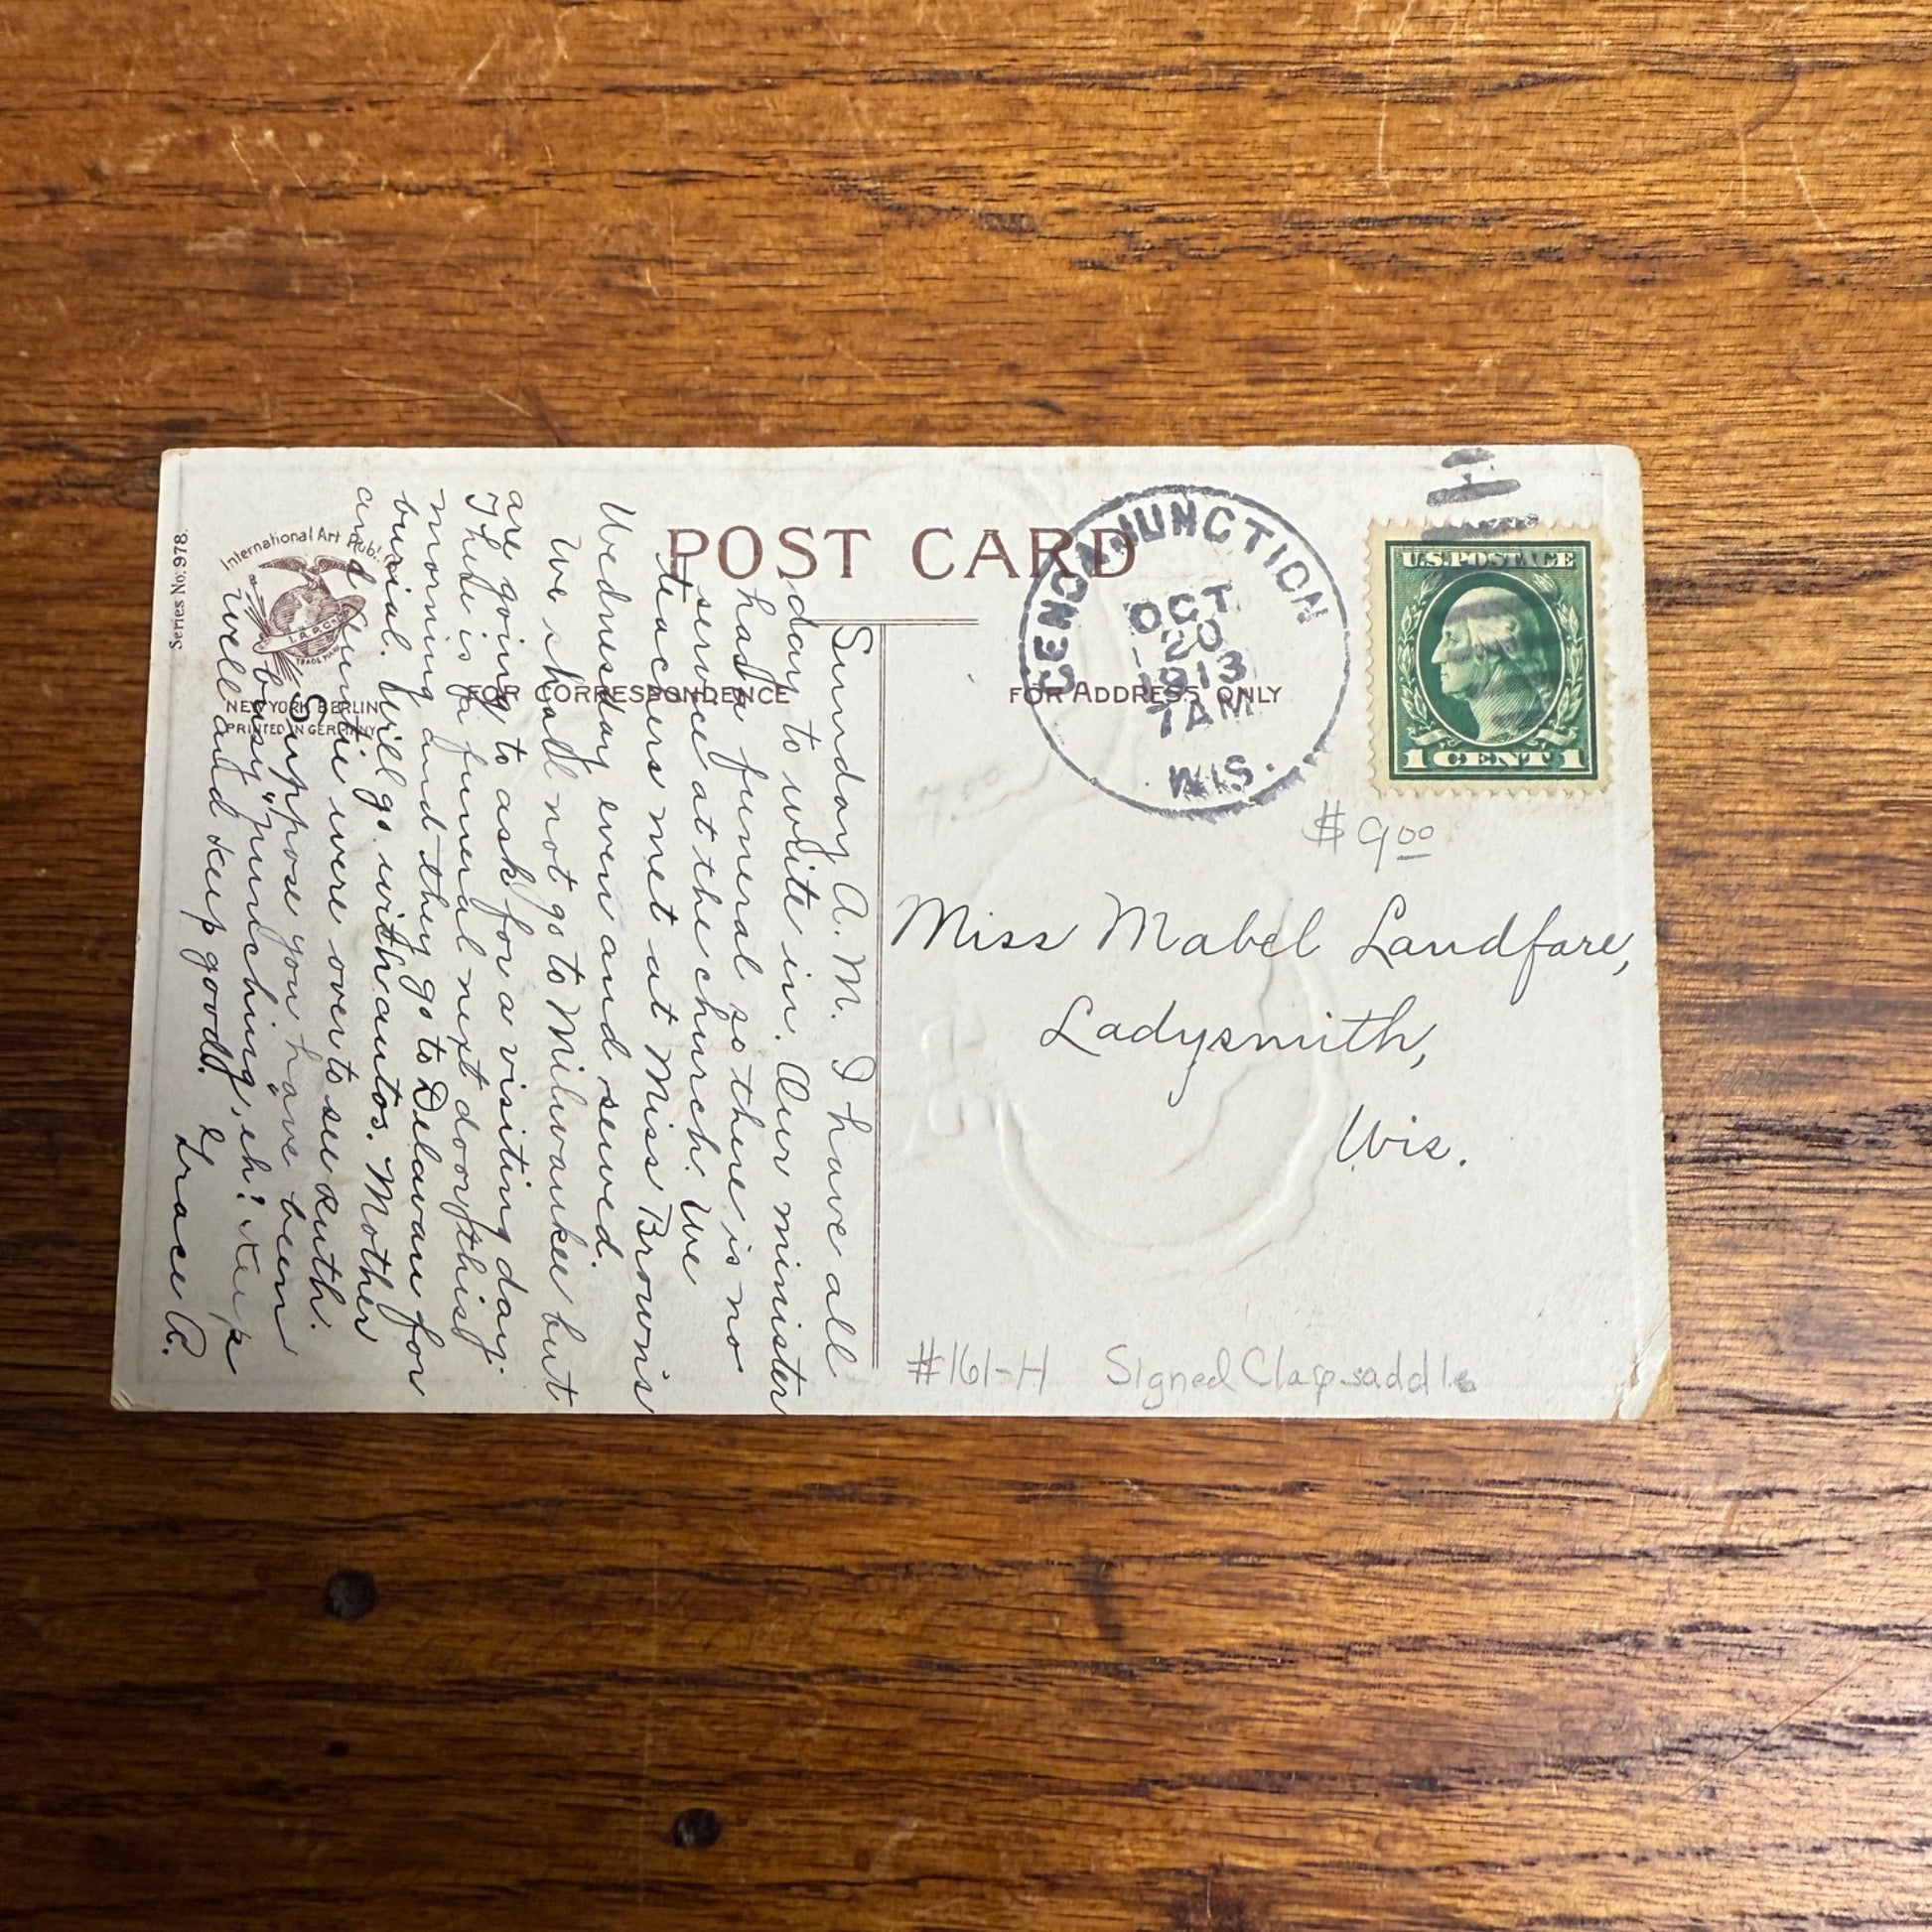 POST CARD
FOR CORRESPONDENCE
FOR ADDRESS ONLY
Series No. 978.
International Art Publ.
I.A.P.Co.
TRADE MARK
NEW YORK BERLIN
PRINTED IN GERMANY
GENOA JUNCTION
OCT
20
1913
7 AM
WIS.
U.S. POSTAGE
1 CENT 1
$9.00
Miss Mabel Landfare,
Ladysmith,
Wis.
#161-H Signed Clapsaddle
Sunday A.M. I have all
day to write in. Our minister
had a funeral so there is no
service at the church. We
teachers met at Miss Brown's
Wednesday even and sewed.
We shall not go to Milwaukee but
are going to ask for a visiting day.
There is a funeral next door this
morning and they go to Delavan for
burial. Will go with autos. Mother
and were over to see Ruth.
Suppose you have been
busy "punching, eh? Keep
well and keep good.
Grace A.